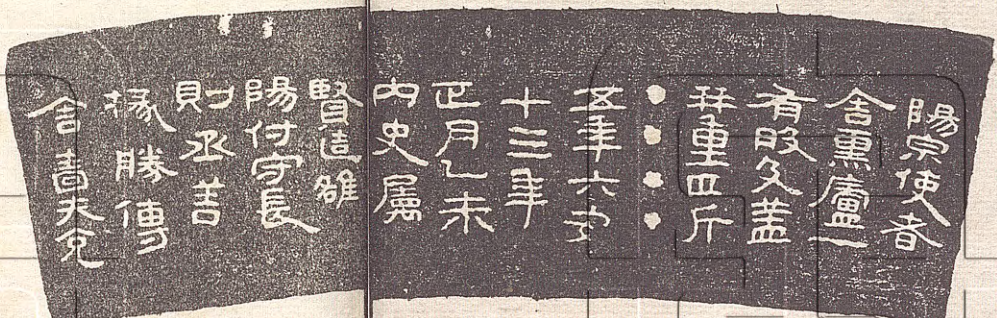 陽泉使者
舍熏廬一
有般及蓋
并重四斤
●●●●
五年六安
十三年
正月乙未
內史屬
賢造雒
陽付守長
則丞善
掾勝傳
舍嗇夫兌